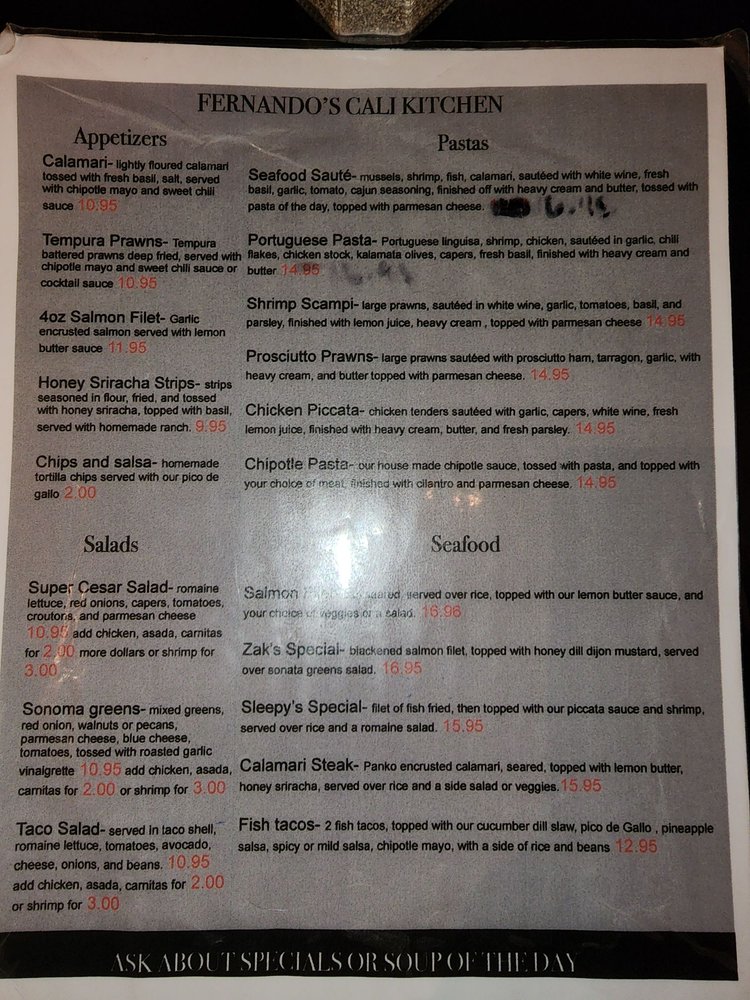 FERNANDO'S CALI KITCHEN
Appetizers
Calamari- lightly floured calamari
tossed with fresh basil, salt, served
with chipotle mayo and sweet chili
sauce 10.95
Tempura Prawns- Tempura
battered prawns deep fried, served with
chipotle mayo and sweet chili sauce or
cocktail sauce 10.95
4oz Salmon Filet- Garlic
encrusted salmon served with lemon
butter sauce 11.95
Honey Sriracha Strips- strips
seasoned in flour, fried, and tossed
with honey sriracha, topped with basil,
served with homemade ranch. 9.95
Chips and salsa- homemade
tortilla chips served with our pico de
gallo 2.00
Salads
Super Cesar Salad- romaine
lettuce, red onions, capers, tomatoes,
croutons, and parmesan cheese
10.95 add chicken, asada, carnitas
for 2.00 more dollars or shrimp for
3.00
Sonoma greens- mixed greens,
red onion, walnuts or pecans,
parmesan cheese, blue cheese,
tomatoes, tossed with roasted garlic
vinaigrette 10.95 add chicken, asada,
carnitas for 2.00 or shrimp for 3.00
Taco Salad- served in taco shell,
romaine lettuce, tomatoes, avocado,
cheese, onions, and beans. 10.95
add chicken, asada, carnitas for 2.00
or shrimp for 3.00
Pastas
Seafood Sauté- mussels, shrimp, fish, calamari, sautéed with white wine, fresh
basil, garlic, tomato, cajun seasoning, finished off with heavy cream and butter, tossed with
pasta of the day, topped with parmesan cheese.
Portuguese Pasta- Portuguese linguisa, shrimp, chicken, sautéed in garlic, chili
flakes, chicken stock, kalamata olives, capers, fresh basil, finished with heavy cream and
butter 14.95
Shrimp Scampi- large prawns, sautéed in white wine, garlic, tomatoes, basil, and
parsley, finished with lemon juice, heavy cream , topped with parmesan cheese 14.95
Prosciutto Prawns- large prawns sautéed with prosciutto ham, tarragon, garlic, with
heavy cream, and butter topped with parmesan cheese. 14.95
Chicken Piccata- chicken tenders sautéed with garlic, capers, white wine, fresh
lemon juice, finished with heavy cream, butter, and fresh parsley. 14.95
Chipotle Pasta- our house made chipotle sauce, tossed with pasta, and topped with
your choice of meat, finished with cilantro and parmesan cheese. 14.95
Seafood
Salmon served over rice, topped with our lemon butter sauce, and
your choice of veggies or a salad. 16.96
Zak's Special- blackened salmon filet, topped with honey dill dijon mustard, served
over sonata greens salad. 16.95
Sleepy's Special- filet of fish fried, then topped with our piccata sauce and shrimp,
served over rice and a romaine salad. 15.95
Calamari Steak- Panko encrusted calamari, seared, topped with lemon butter,
honey sriracha, served over rice and a side salad or veggies. 15.95
Fish tacos- 2 fish tacos, topped with our cucumber dill slaw, pico de Gallo , pineapple
salsa, spicy or mild salsa, chipotle mayo, with a side of rice and beans 12.95
ASK ABOUT SPECIALS OR SOUP OF THE DAY